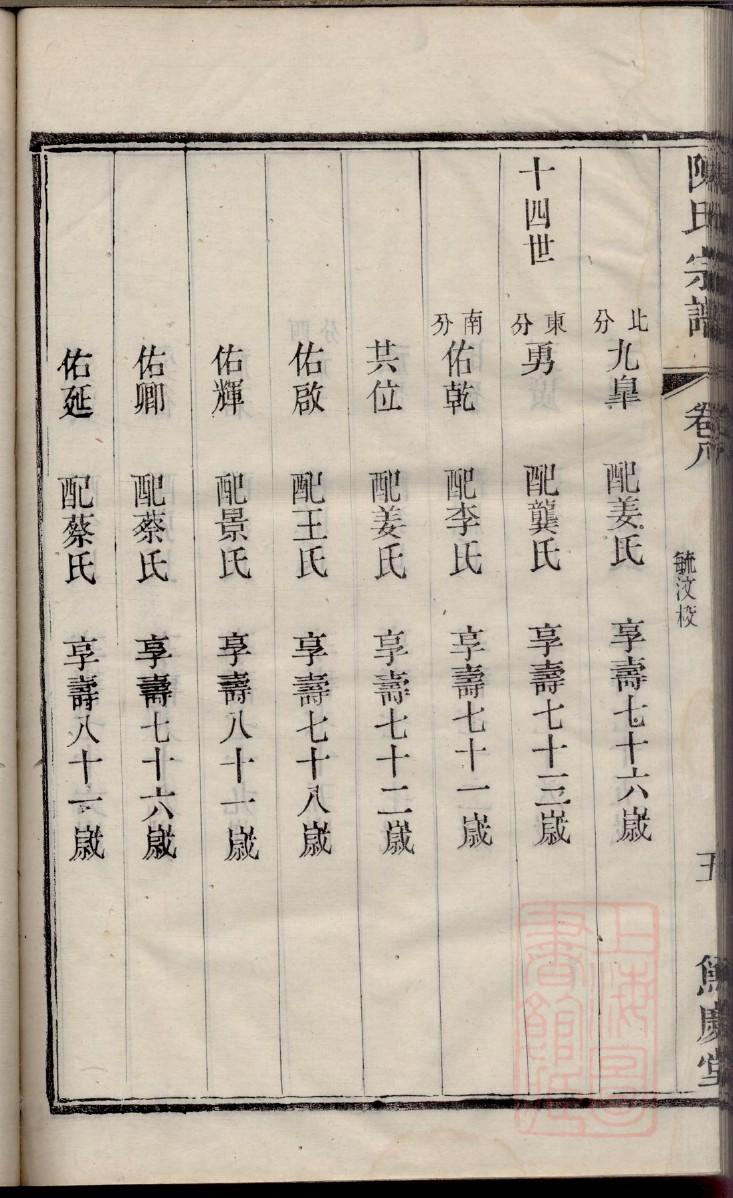 陳氏宗譜 卷 毓汶校 五 慶堂
北分 九臯 配姜氏 享壽七十六嵗
十四世 東分 勇 配龔氏 享壽七十三嵗
南分 佑乾 配李氏 享壽七十一嵗
共位 配姜氏 享壽七十二嵗
佑啟 配王氏 享壽七十八嵗
佑輝 配景氏 享壽八十一嵗
佑卿 配蔡氏 享壽七十六嵗
佑延 配蔡氏 享壽八十一嵗
上海圖
書館藏